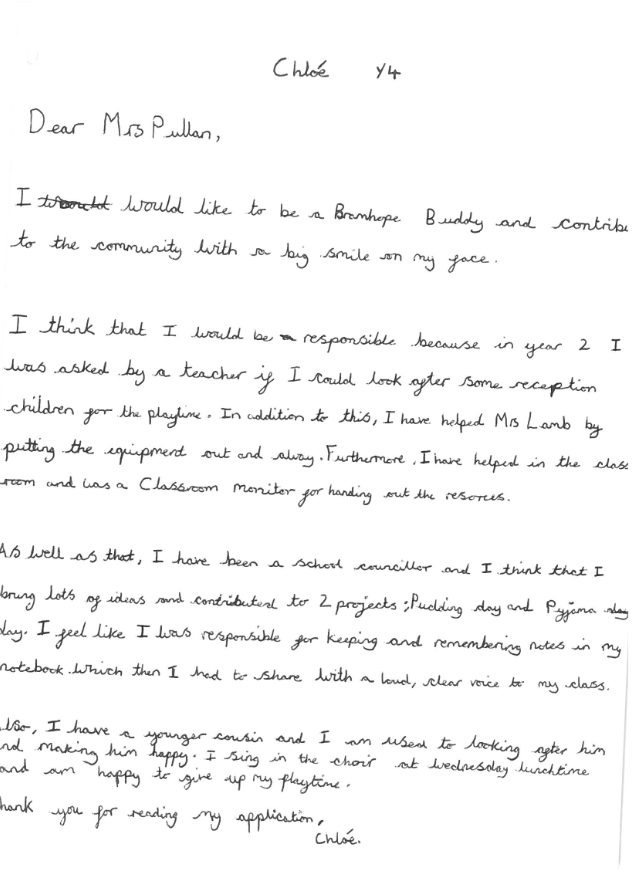 Chloé Y4
Dear Mrs Pullan,
I would like to be a Bramhope Buddy and contribu
to the community with a big smile on my face.
I think that I would be responsible because in year 2 I
was asked by a teacher if I could look after some reception
children for the playtime. In addition to this, I have helped Mrs Lamb by
putting the equipment out and away. Furthermore, I have helped in the class
room and was a Classroom monitor for handing out the resorces.
As well as that, I have been a school councillor and I think that I
bring lots of ideas and contributed to 2 projects; Pudding day and Pyjama
day. I feel like I was responsible for keeping and remembering notes in my
notebook which then I had to share with a loud, clear voice to my class.
lso, I have a younger cousin and I am used to looking after him
nd making him happy. I sing in the choir at wednesday lunchtime
and am happy to give up my playtime.
hank you for reading my application,
Chloé.